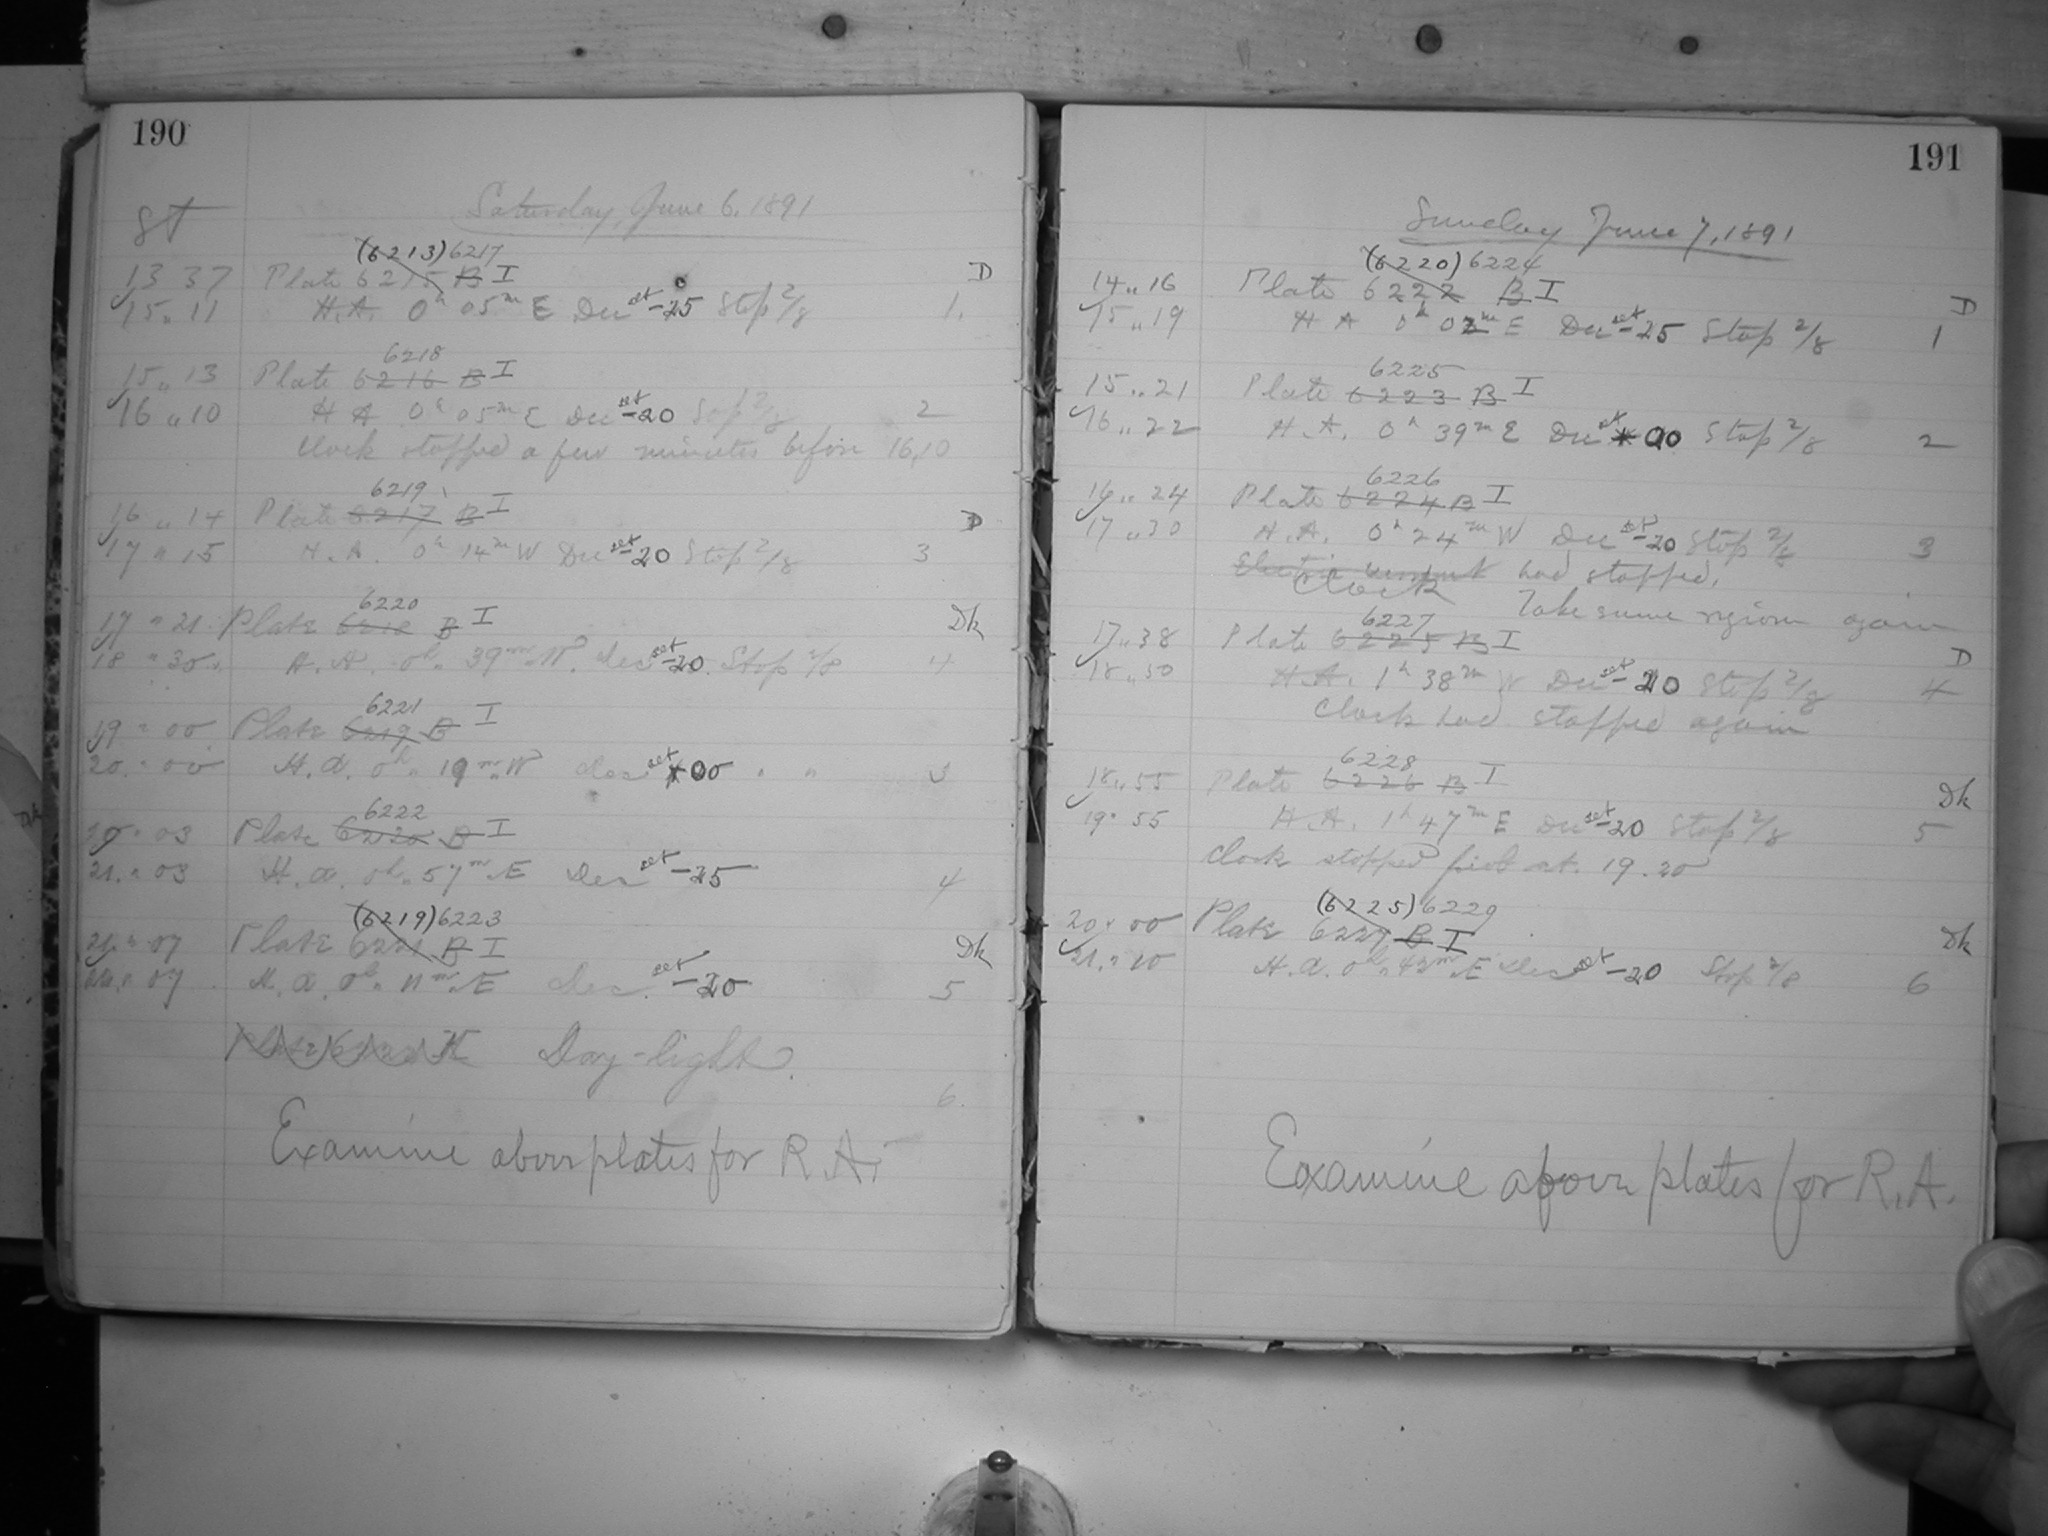 190
Saturday, June 6, 1891
ST
(6213) 6217
13 37 Plate 6215 B I D
15 " 11 H.A. 0h 05m E Dec set -25 Stop 2/8 1.
6218
15 " 13 Plate 6216 B I
16 " 10 H A 0h 05m E Dec set -20 Stop 2/8 2
Clock stopped a few minutes before 16,10
6219
16 " 14 Plate 6217 B I D
17 " 15 H.A. 0h 14m W Dec set -20 Stop 2/8 3
6220
17 " 21 Plate 6218 B I Dk
18 " 30 H.A. 0h 39m W. dec set -20. Stop 2/8 4
6221
19 " 00 Plate 6219 B I
20 " 00 H.A. 0h 19m W dec set +00 " "
6222
20 " 03 Plate 6220 B I
21 " 03 H.A. 0h 57m E Dec set -25 4
(6219) 6223
21 " 07 Plate 6221 B I Dk
22 " 07 H.A. 0h 11m E dec. set -20 5
Day-light.
6.
Examine above plates for R.A.
191
Sunday June 7, 1891
(6220) 6224
14 " 16 Plate 6222 B I D
15 " 19 H A 0h 02m E Dec set -25 Stop 2/8 1
6225
15 " 21 Plate 6223 B I
16 " 22 H.A. 0h 39m E Dec set 00 Stop 2/8 2
6226
16 " 24 Plate 6224 B I
17 " 30 H.A. 0h 24m W Dec set -20 Stop 2/8 3
Electric current had stopped.
Clock Take same region again
6227
17 " 38 Plate 6225 B I D
18 " 50 H.A. 1h 38m W Dec set -20 Stop 2/8 4
Clock had stopped again
6228
18 " 55 Plate 6226 B I Dk
19 " 55 H.A. 1h 47m E Dec set -20 Stop 2/8 5
Clock stopped first at. 19.20
(6225) 6229
20 " 00 Plate 6227 B I Dk
21 " 10 H.A. 0h 42m E Dec set -20 Stop 2/8 6
Examine above plates for R.A.